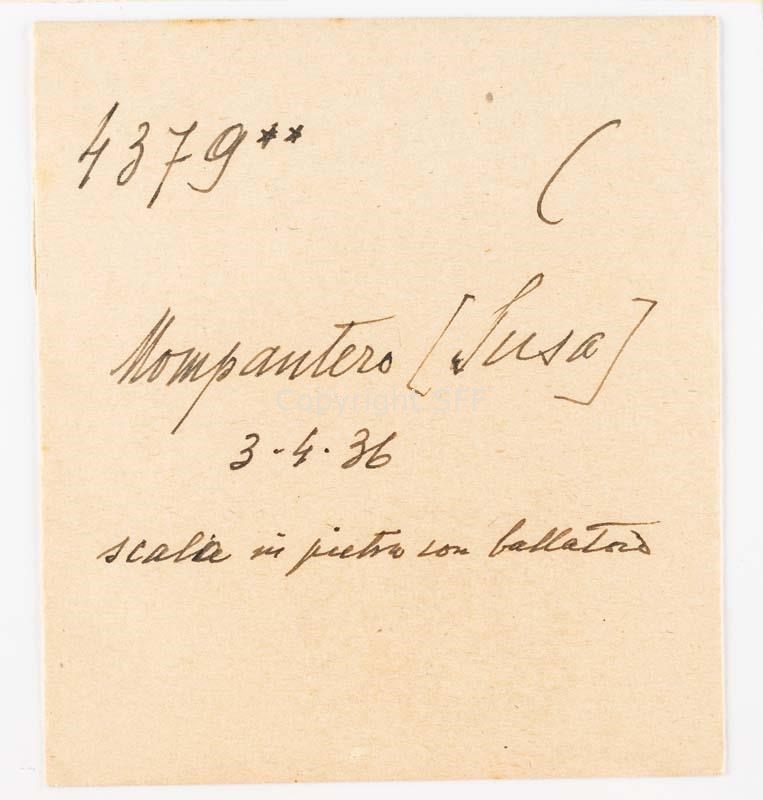 4379** (
Mompantero [Susa]
Copyright SFP
3-4-36
scala in pietra con ballatoio